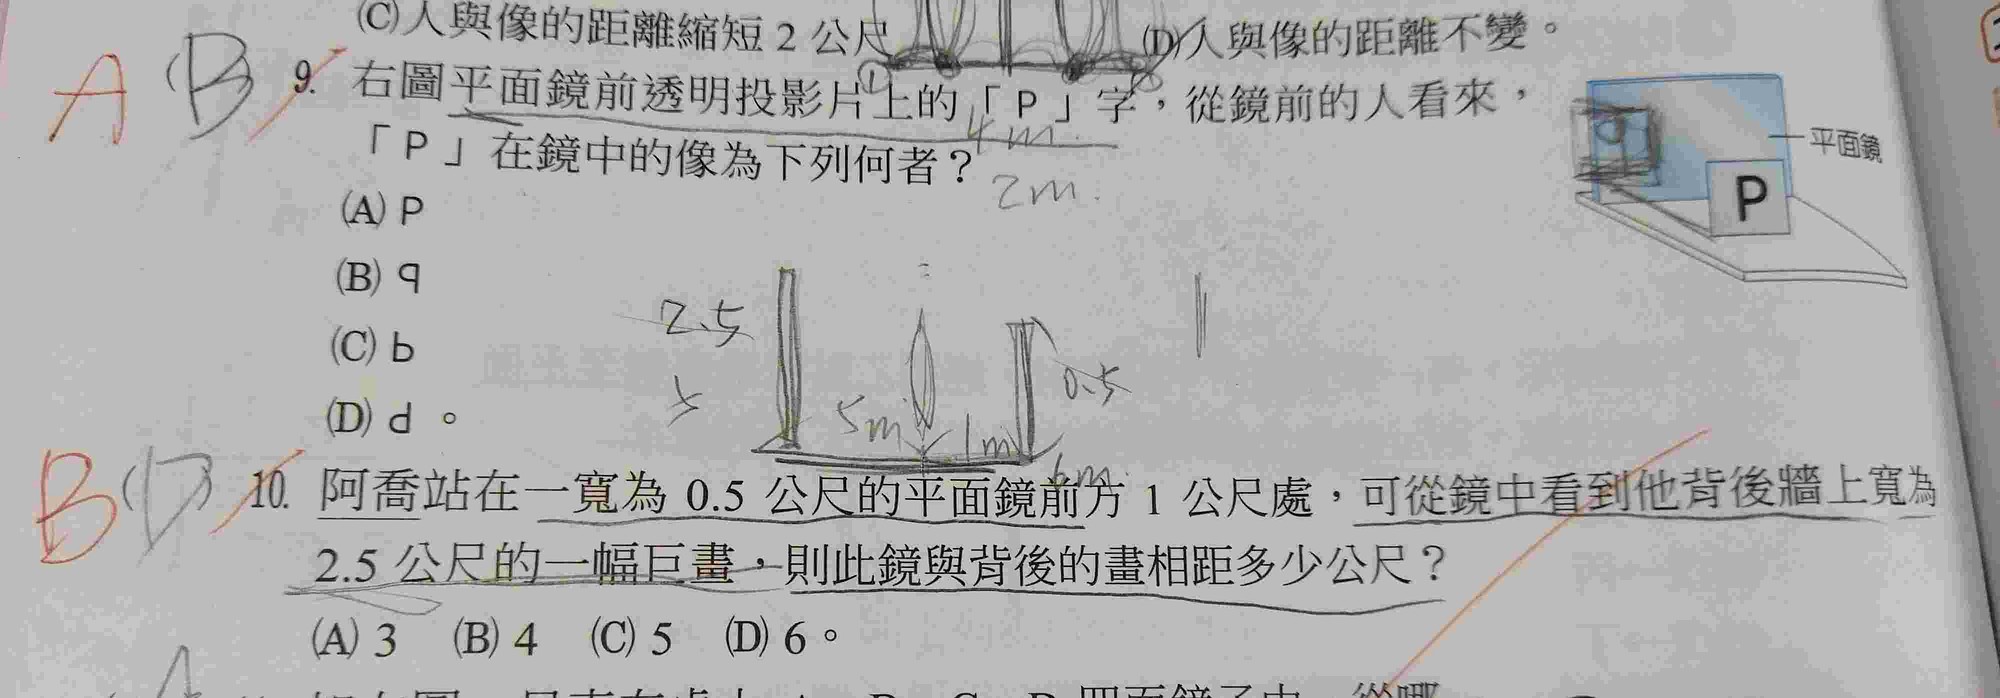 (C)人與像的距離縮短 2 公尺 (D)人與像的距離不變。
A (B) 9. 右圖平面鏡前透明投影片上的「P」字，從鏡前的人看來，
4m
「P」在鏡中的像為下列何者？
2m.
平面鏡
P
(A) P
(B) q
(C) b
(D) d。
2.5
5m
1m
0.5
6m.
B (D) 10. 阿喬站在一寬為 0.5 公尺的平面鏡前方 1 公尺處，可從鏡中看到他背後牆上寬為
2.5 公尺的一幅巨畫，則此鏡與背後的畫相距多少公尺？
(A) 3 (B) 4 (C) 5 (D) 6。